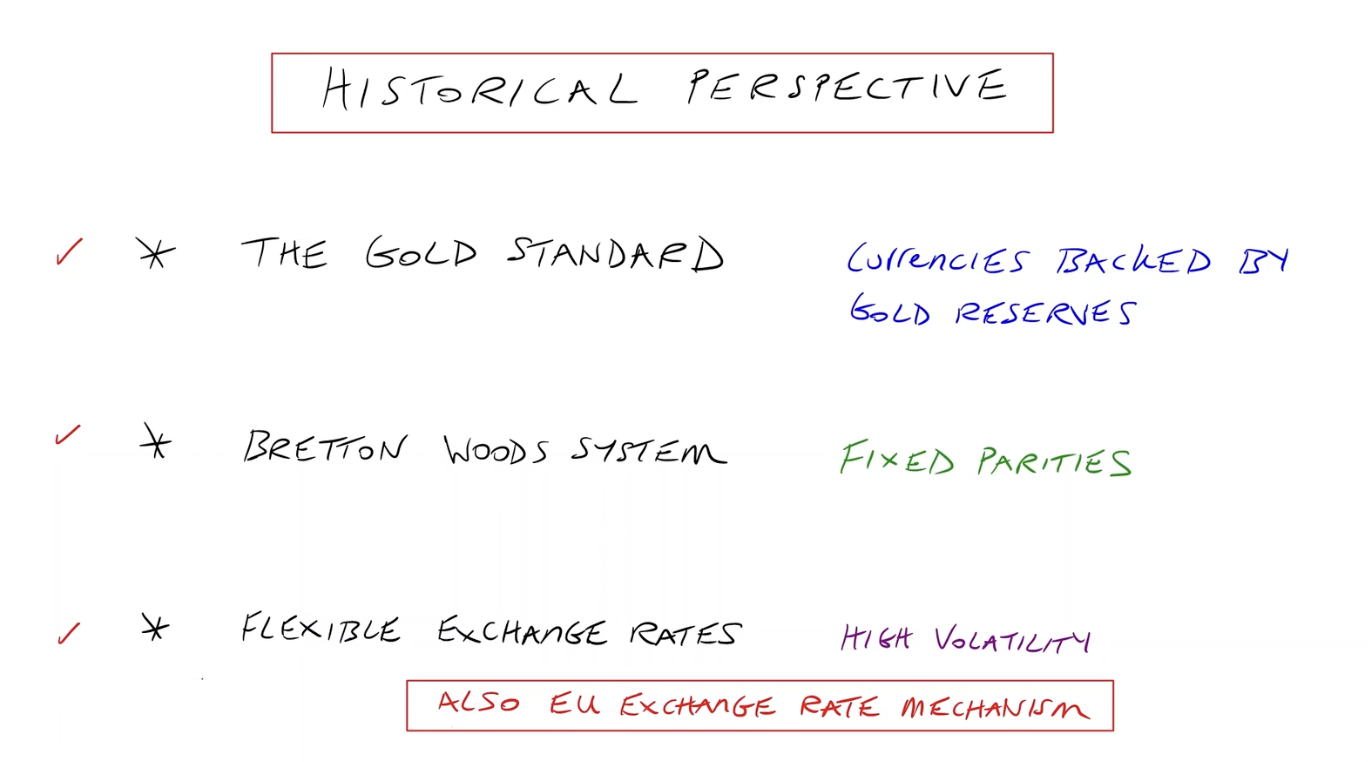 HISTORICAL PERSPECTIVE
✓ * THE GOLD STANDARD
CurrencIES BACKED BY
GOLD RESERVES
✓ * BRETTON WOODS SYSTEM
FIXED PARITIES
✓ * FLEXIBLE EXCHANGE RATES
HIGH VOLATILITY
ALSO EU EXCHANGE RATE MECHANISM